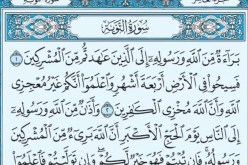 سورة التوبة
براءة من الله ورسوله إلى الذين عهدتم من المشركين ١
فسيحوا في الأرض أربعة أشهر واعلموا أنكم غير معجزي
الله وأن الله مخزي الكفرين ٢ وأذن من الله ورسوله
إلى الناس يوم الحج الأكبر أن الله بريء من المشركين
ورسوله فإن تبتم فهو خير لكم وإن توليتم فاعلموا